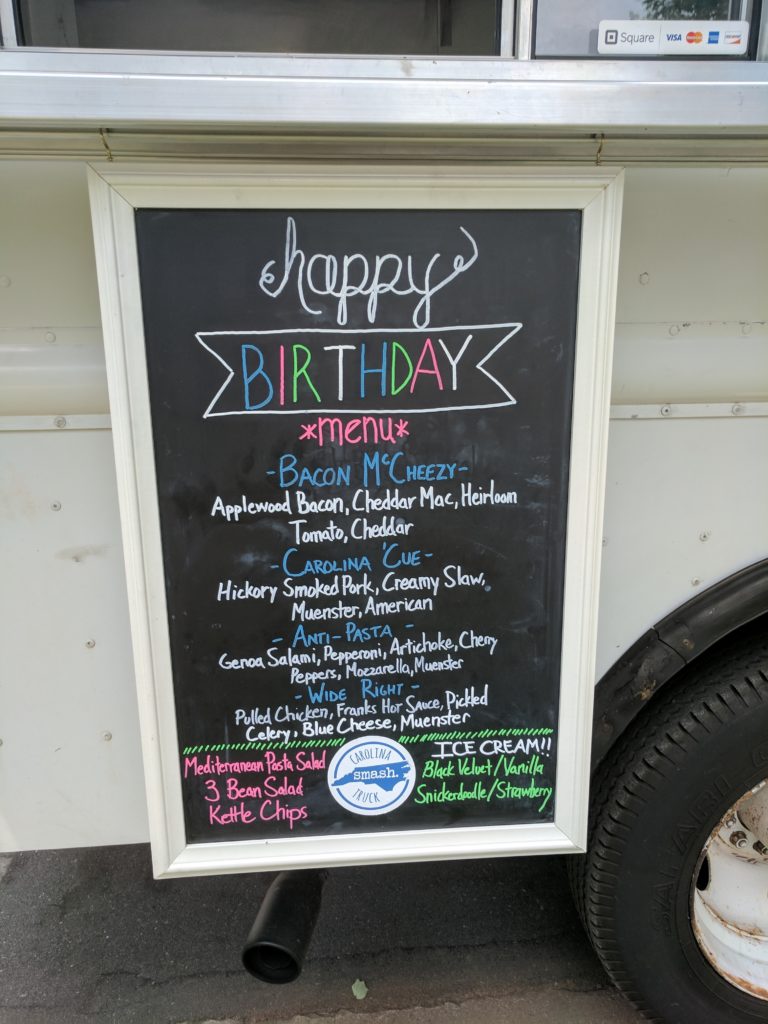 Square VISA
happy
BIRTHDAY
*menu*
-BACON McCHEEZY-
Applewood Bacon, Cheddar Mac, Heirloom
Tomato, Cheddar
-CAROLINA 'CUE-
Hickory Smoked Pork, Creamy Slaw,
Muenster, American
-ANTI-PASTA-
Genoa Salami, Pepperoni, Artichoke, Cherry
Peppers, Mozzarella, Muenster
-WIDE RIGHT-
Pulled Chicken, Franks Hot Sauce, Pickled
Celery, Blue Cheese, Muenster
Mediterranean Pasta Salad
3 Bean Salad
Kettle Chips
CAROLINA
smash.
TRUCK
ICE CREAM!!
Black Velvet/Vanilla
Snickerdoodle/Strawberry